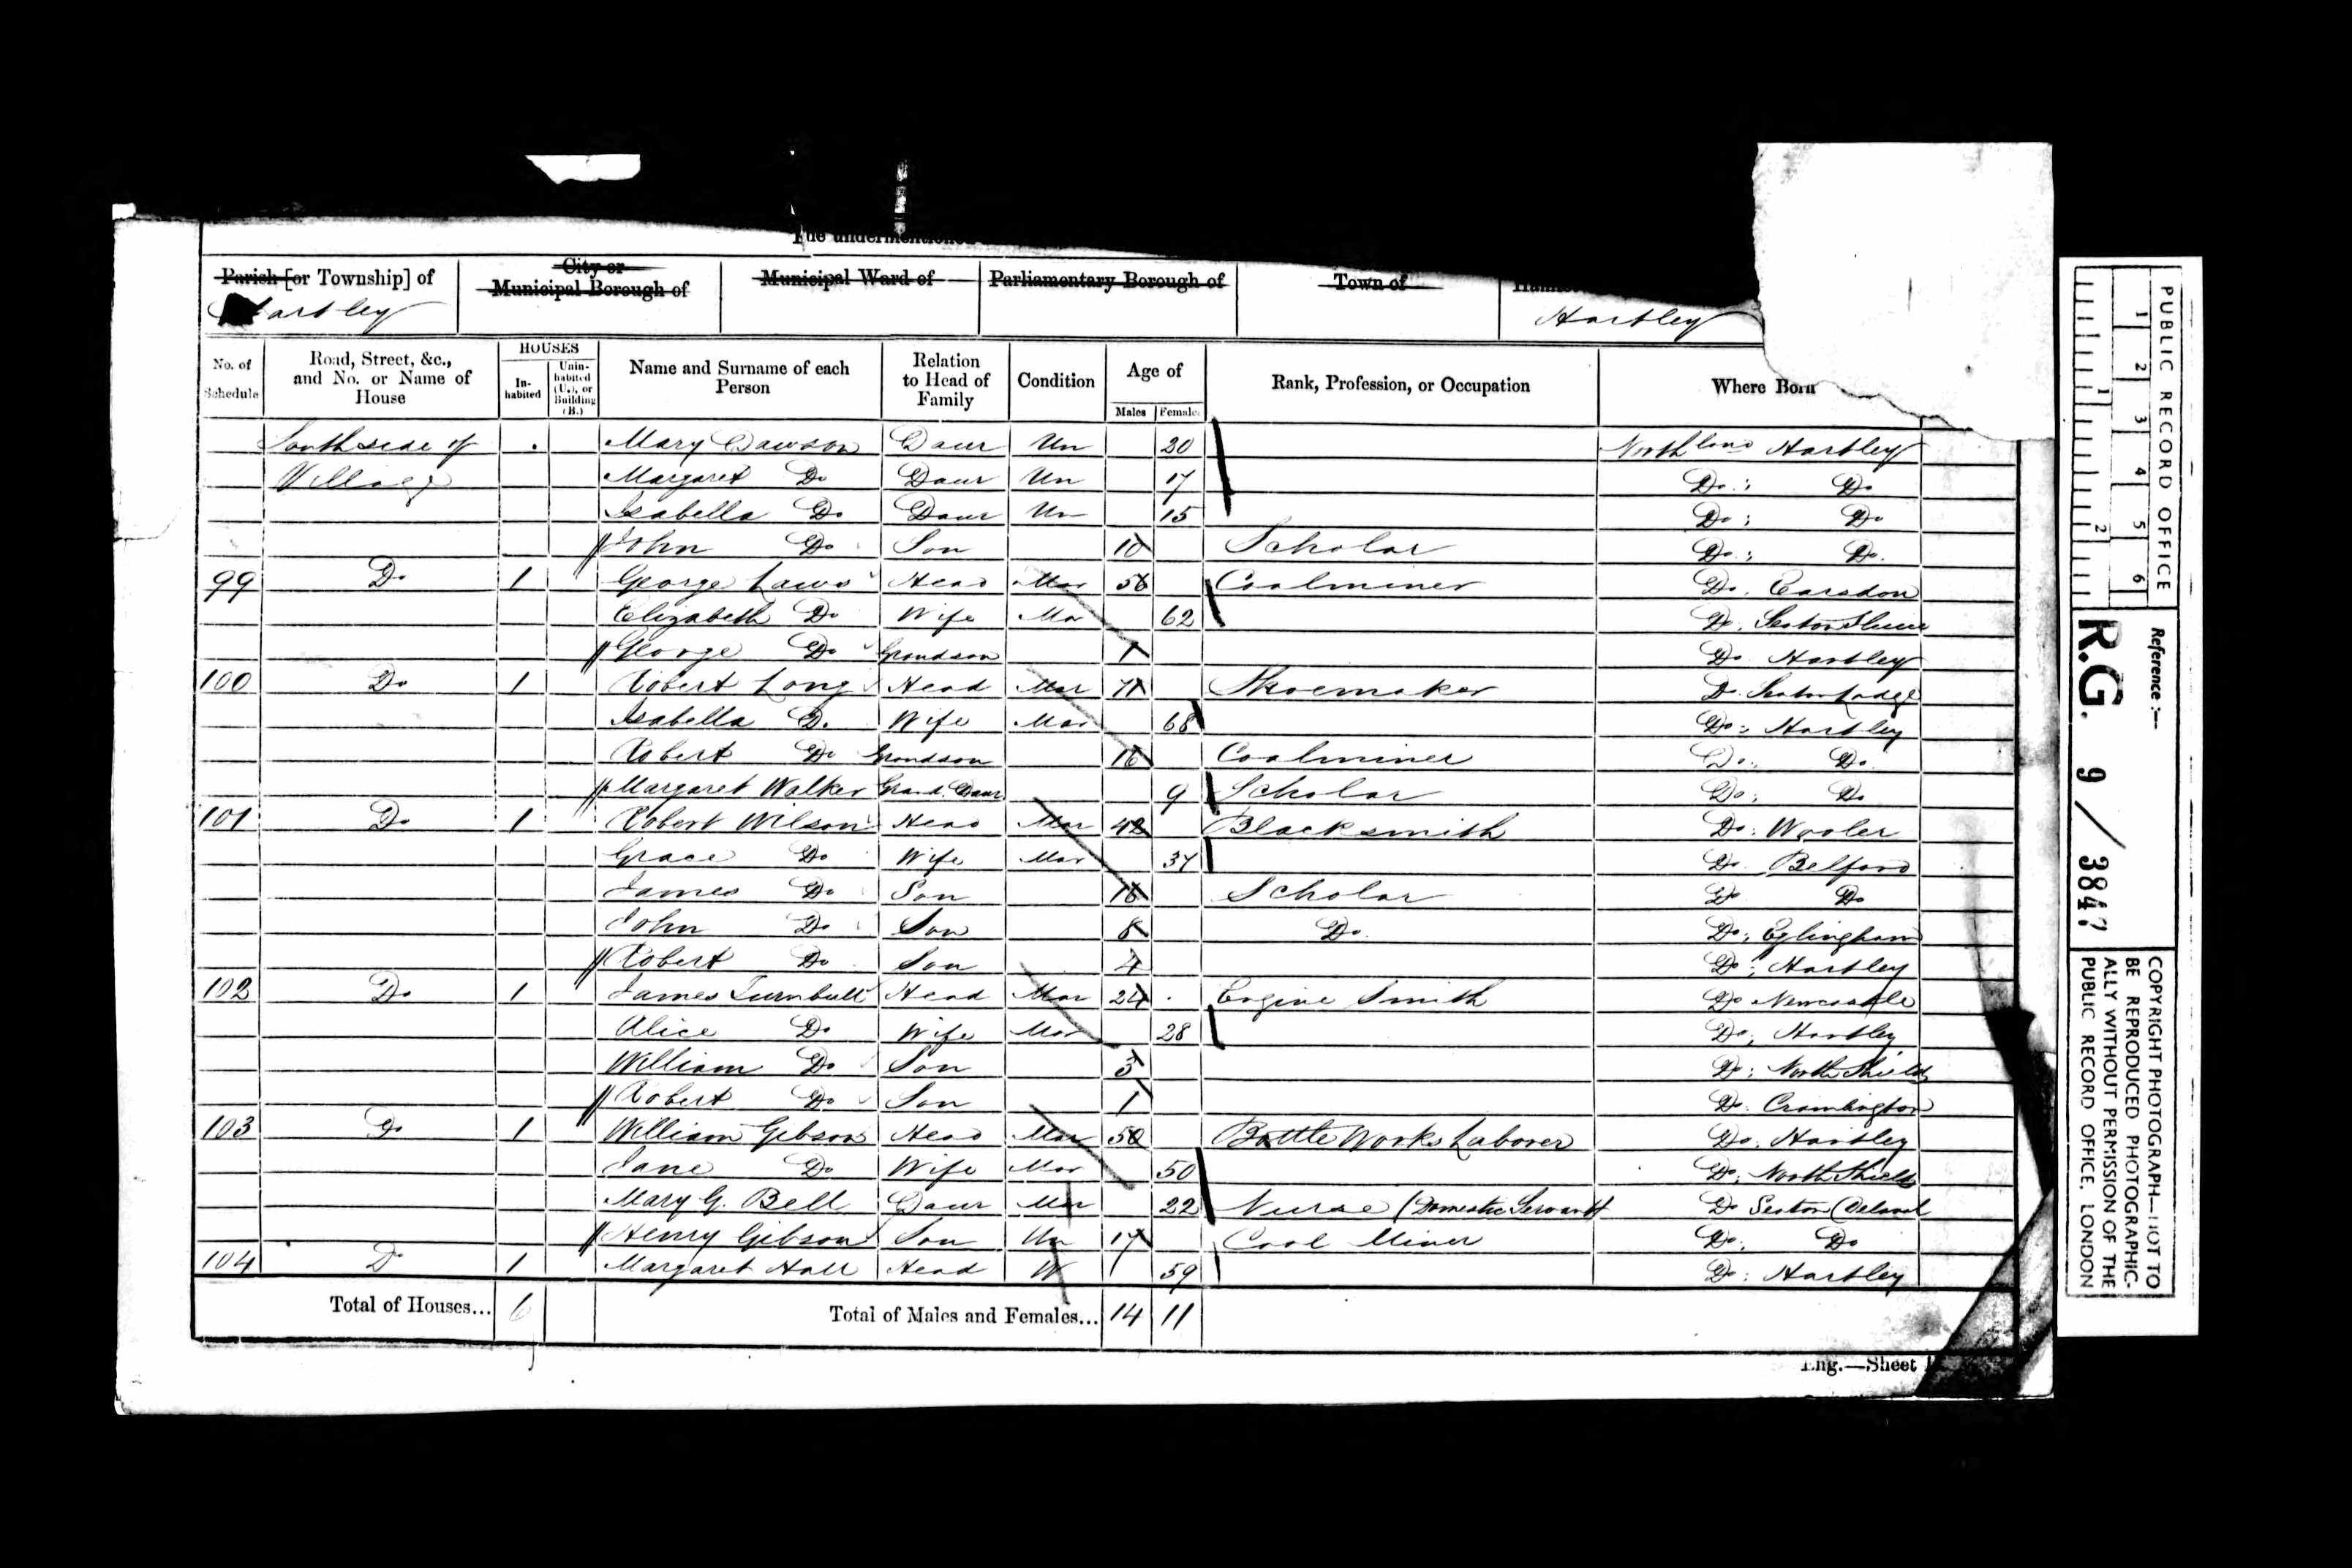 The undermentioned
Parish [or Township] of
City or
Municipal Borough of
Municipal Ward of
Parliamentary Borough of
Town of
Hartley
Hartley
No. of Schedule
Road, Street, &c., and No. or Name of House
HOUSES
In-habited
Unin-habited (U.), or Building (B.)
Name and Surname of each Person
Relation to Head of Family
Condition
Age of
Males
Females
Rank, Profession, or Occupation
Where Born
South side of Mary Dawson Daur Un 20 Northland Hartley
Village Margaret Do Daur Un 17 Do : Do
Isabella Do Daur Un 15 Do ; Do
John Do Son 10 Scholar Do ; Do.
99 Do 1 George Laws Head Mar 56 Coalminer Do. Earsdon
Elizabeth Do Wife Mar 62 Do. Seaton Sluice
George Do Grandson 1 Do Hartley
100 Do 1 Robert Long Head Mar 71 Shoemaker Do. Seaton Lodge
Isabella Do Wife Mar 68 Do : Hartley
Robert Do Grandson 16 Coalminer Do. Do
Margaret Walker Grand. Daur 9 Scholar Do ; Do
101 Do 1 Robert Wilson Head Mar 42 Blacksmith Do : Wooler
Grace Do Wife Mar 37 Do Belford
James Do Son Scholar Do Do
John Do Son 8 Do Do ; Eglingham
Robert Do Son 4 Do ; Hartley
102 Do 1 James Turnbull Head Mar 24 Engine Smith Do Newcastle
Alice Do Wife Mar 28 Do ; Hartley
William Do Son 3 Do ; North Shields
Robert Do Son 1 Do. Cramlington
103 Do 1 William Gibson Head Mar 50 Bottle Works Laborer Do. Hartley
Jane Do Wife Mar 50 Do ; North Shields
Mary G. Bell Daur Mar 22 Nurse (Domestic Servant) Do Seaton Delaval
Henry Gibson Son Un 17 Coal Miner Do ; Do
104 Do 1 Margaret Hall Head W 59 Do : Hartley
Total of Houses... 6 Total of Males and Females... 14 11
Eng.—Sheet
PUBLIC RECORD OFFICE
1 2 3 4 5 6
1 2
Reference :—
R.G. 9 / 3847
COPYRIGHT PHOTOGRAPH—NOT TO
BE REPRODUCED PHOTOGRAPHIC-
ALLY WITHOUT PERMISSION OF THE
PUBLIC RECORD OFFICE, LONDON